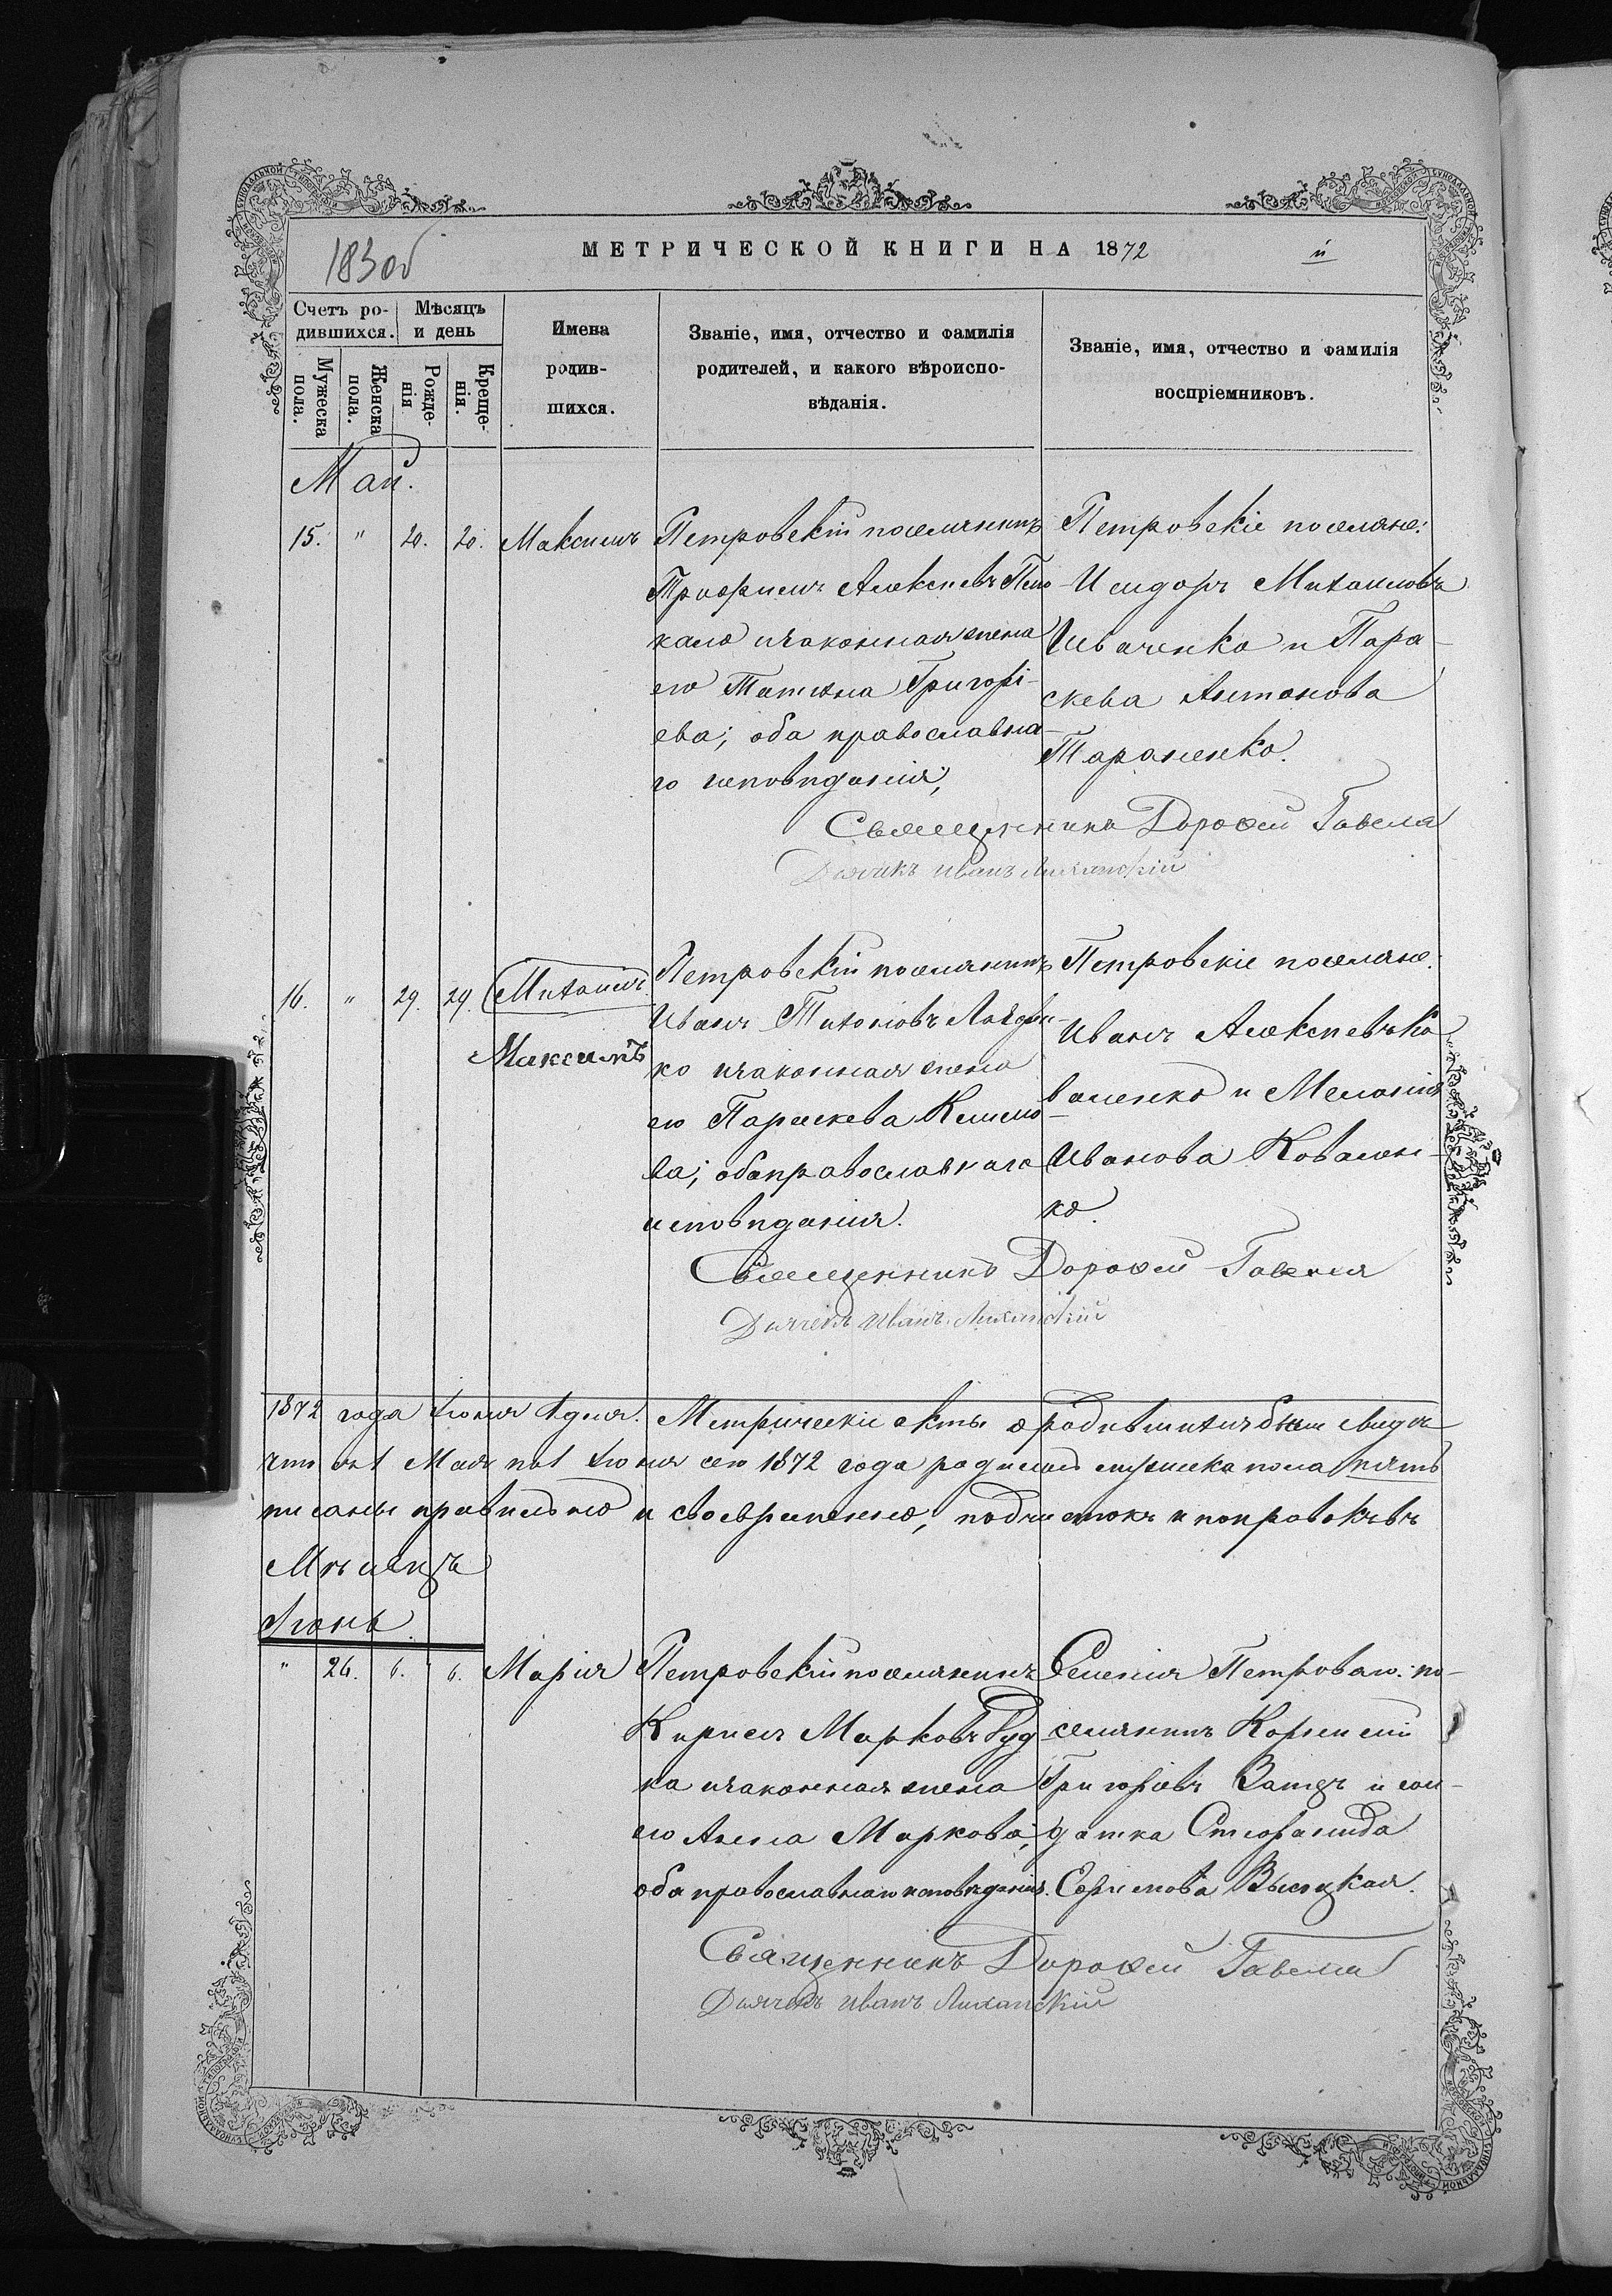 183об
МЕТРИЧЕСКОЙ КНИГИ НА 1872 й
Счетъ ро-
дившихся.
Мѣсяцъ
и день
Мужеска
пола.
Женска
пола.
Рожде-
нія
Креще-
нія.
Имена
родив-
шихся.
Званіе, имя, отчество и фамилія
родителей, и какого вѣроиспо-
вѣданія.
Званіе, имя, отчество и фамилія
воспріемниковъ.
Май.
15. " 20. 20. Максимъ
Петровскій поселянинъ
Трофимъ Алексѣевъ
кало и законная жена
его Татіана Григорі-
ева; оба православна-
го исповѣданія;
Петровскіе поселяне:
Исидоръ Михаиловъ
Иваченко и Пара-
скева Антонова
Тараненко.
Священникъ Дорофей Гавеля
Дьячекъ Иванъ
16. " 29. 29. Михаилъ
Максимъ
Петровскій поселянинъ
Иванъ Тихоновъ
ко и законная жена
его Параскева Климо-
ва; оба православнаго
исповѣданія.
Петровскіе поселяне:
Иванъ Алексѣевъ Ко
валенко и Меланія
Иванова Ковален-
ко.
Священникъ Дорофей Гавеля
Дьячекъ Иванъ
1872 года Іюня 1 дня. Метрическіе акты о родившихся были свидѣ-
1 Мая по 1 Іюня сего 1872 года родилось мужеска пола пять
писаны правильно и своевременно, подчистокъ и поправокъ въ
Мѣсяцъ
Іюнь.
" 26. 6. 6. Марія
Петровскій поселянинъ
Кирилъ Марковъ Руд
ка и законная жена
его Анна Маркова;
оба православнаго исповѣданія.
Селенія Петроваго: по-
селянинъ Корнилій
Григорьевъ Заецъ и сол-
датка Стефанида
Ефимова Высоцкая.
Священникъ Дорофей Гавеля
Дьячекъ Иванъ